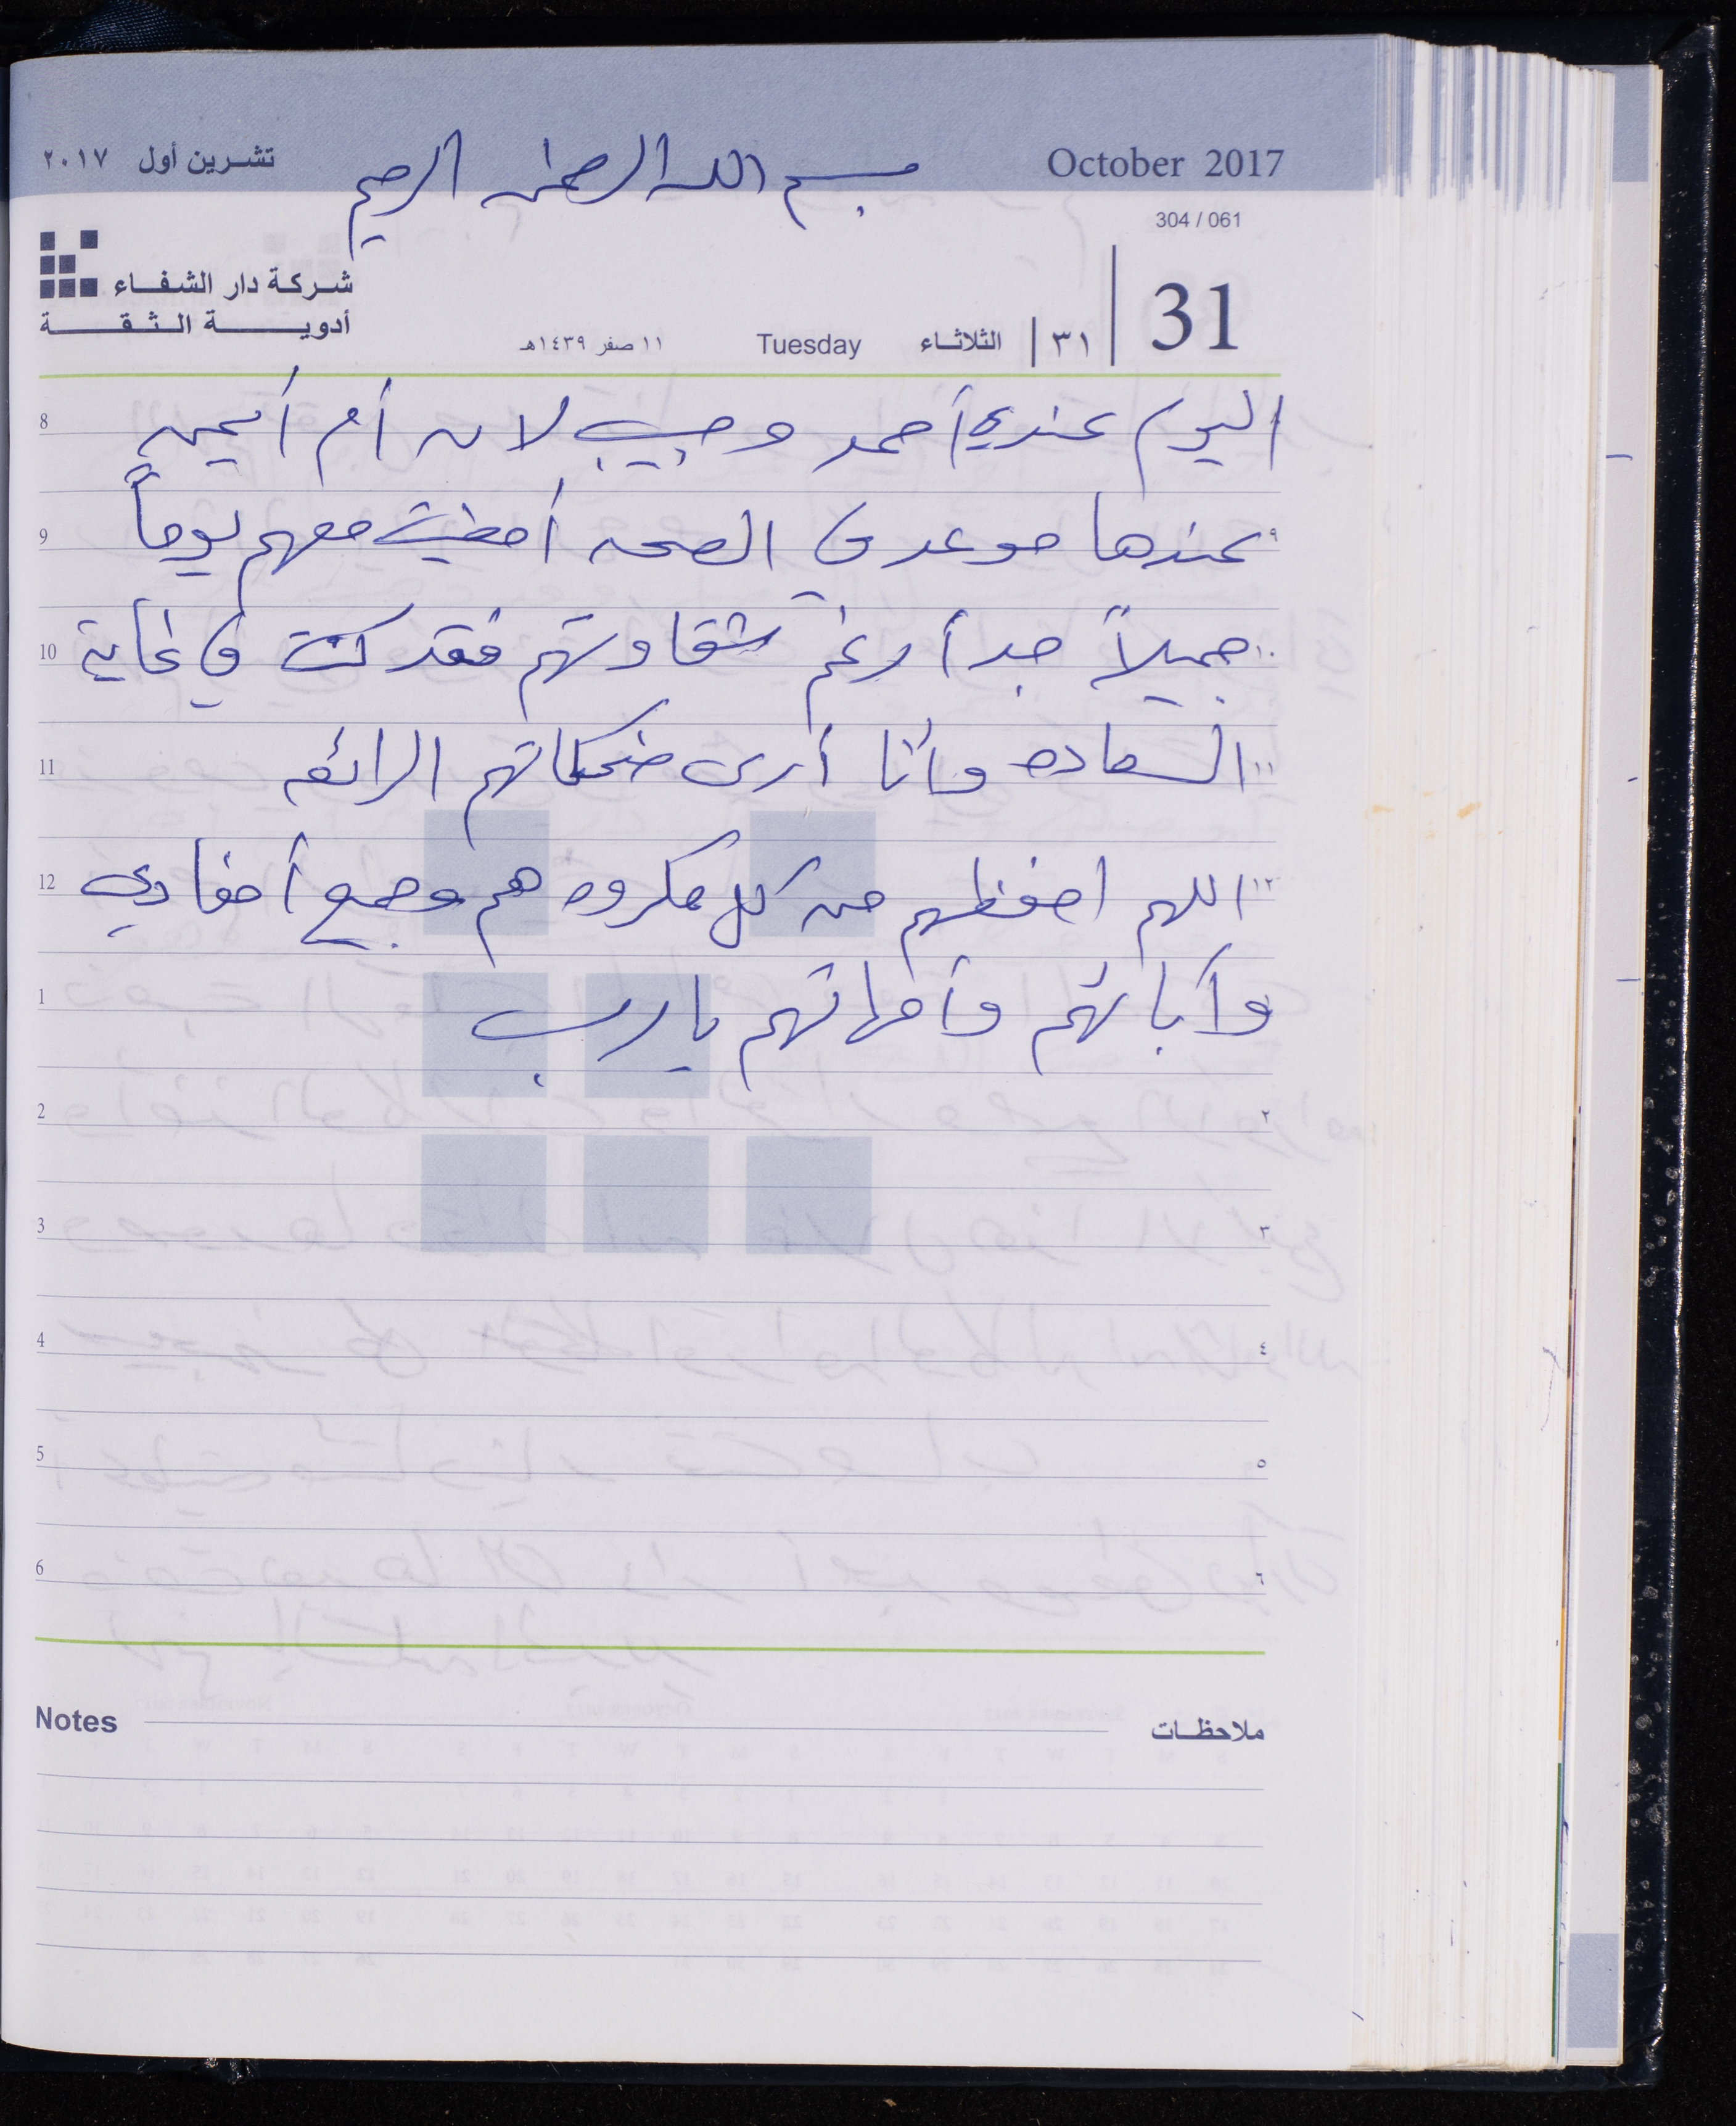 تشرين أول ٢٠١٧
بسم الله الرحمن الرحيم
October 2017
304 / 061
شركة دار الشفاء
أدوية الثقة
31
٣١
الثلاثاء
Tuesday
١١ صفر ١٤٣٩هـ
8 اليوم عندي أحمد وحبيب لان أم أيمن
9 عندها موعد في الصحه أمضيت معهم يوماً ٩
10 جميلاً جداً رغم شقاوتهم فقد كنت في غاية ١٠
11 السعاده وأنا أرى ضحكاتهم الرائعه ١١
12 اللهم احفظهم من كل مكروه هم وجميع أحفادي ١٢
1 وآبائهم وأمهاتهم يارب
2 ٢
3 ٣
4 ٤
5 ٥
6 ٦
Notes ملاحظات